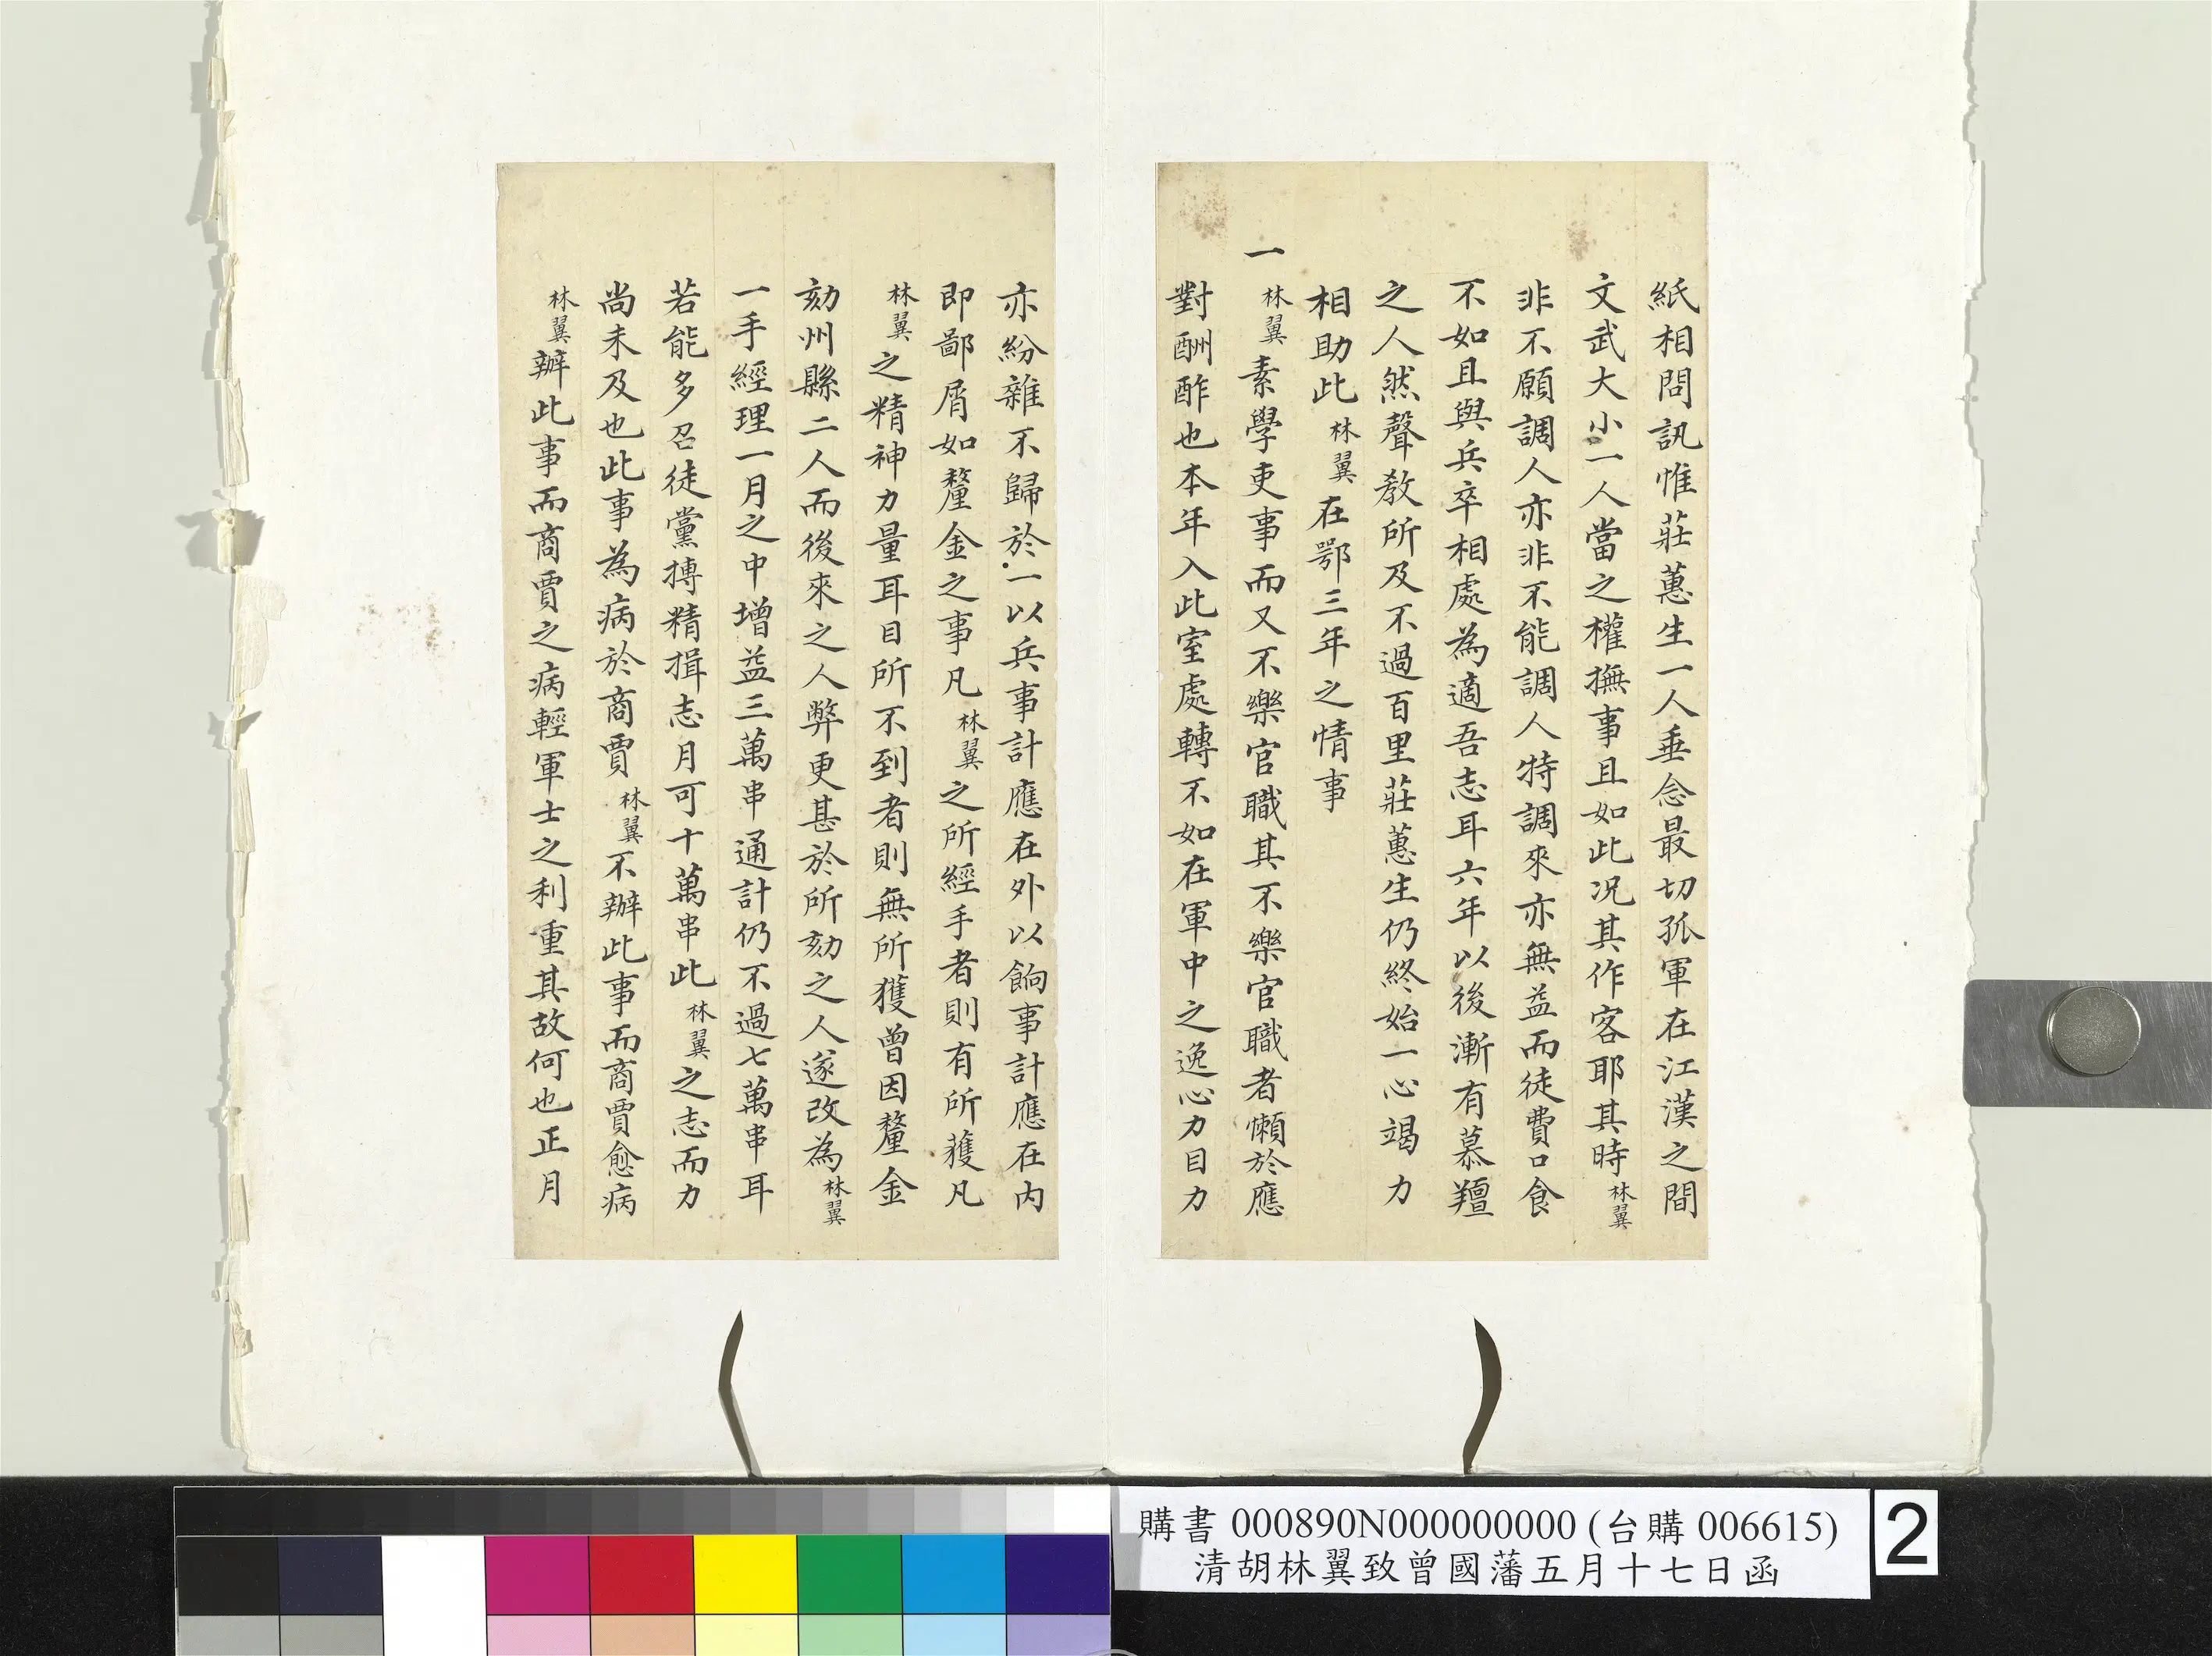 紙相問訊惟莊蕙生一人垂念最切孤軍在江漢之間
文武大小一人當之權撫事且如此况其作客耶其時林翼
非不願調人亦非不能調人特調來亦無益而徒費口食
不如且與兵卒相處為適吾志耳六年以後漸有慕羶
之人然聲教所及不過百里莊蕙生仍終始一心竭力
相助此林翼在鄂三年之情事
一林翼素學吏事而又不樂官職其不樂官職者懶於應
對酬酢也本年入此室處轉不如在軍中之逸心力目力
亦紛雜不歸於一以兵事計應在外以餉事計應在内
即鄙屑如釐金之事凡林翼之所經手者則有所獲凡
林翼之精神力量耳目所不到者則無所獲曾因釐金
劾州縣二人而後來之人弊更甚於所劾之人遂改為林翼
一手經理一月之中增益三萬串通計仍不過七萬串耳
若能多召徒黨摶精揖志月可十萬串此林翼之志而力
尚未及也此事為病於商賈林翼不辦此事而商賈愈病
林翼辦此事而商賈之病輕軍士之利重其故何也正月
購書 000890N000000000 (台購 006615)
清胡林翼致曾國藩五月十七日函
2